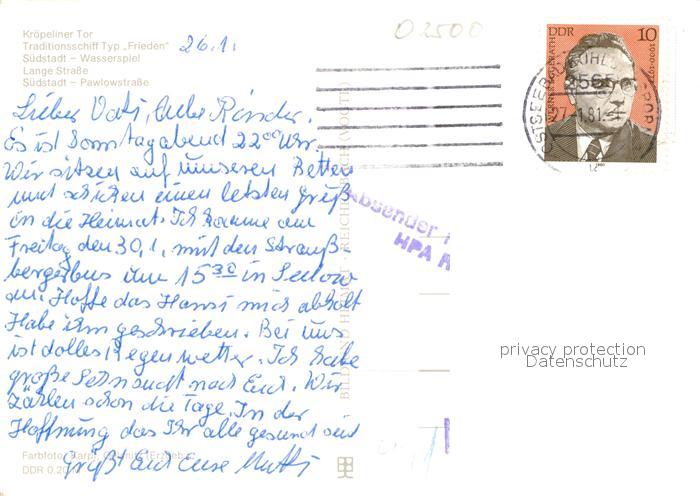 Kröpeliner Tor
Traditionsschiff Typ „Frieden"
Südstadt – Wasserspiel
Lange Straße
Südstadt – Pawlowstraße
26.1.
02500
DDR 10
27.-1.81.-
Lieber Vati, liebe Kinder.
Es ist Sonntagabend 22 00 Uhr.
Wir sitzen auf unseren Betten
und schicken einen letzten Gruß
in die Heimat. Ich komme am
Freitag den 30.1. mit den Strauß-
bergerbus um 15 30 in Seelow
an. Hoffe das Hansi mich abholt
Habe ihm geschrieben. Bei uns
ist dolles Regenwetter. Ich habe
große Sehnsucht nach Euch. Wir
zählen schon die Tage. In der
Hoffnung das Ihr alle gesund seid
grüßt Euch eure Mutti
Absender
HPA
BILD UND HEIMAT · REICHENBACH (VOGTL)
privacy protection
Datenschutz
Farbfotos:
DDR 0,20